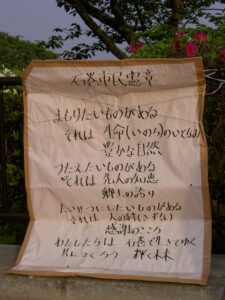 石巻市民憲章
まもりたいものがある
それは 生命(いのち)のいとなみ
豊かな自然
つたえたいものがある
それは 先人の知恵
郷土の誇り
たいせつにしたいものがある
それは 人の絆(きずな)
感謝のこころ
わたしたちは 石巻で生きてゆく
共につくろう 輝く未来